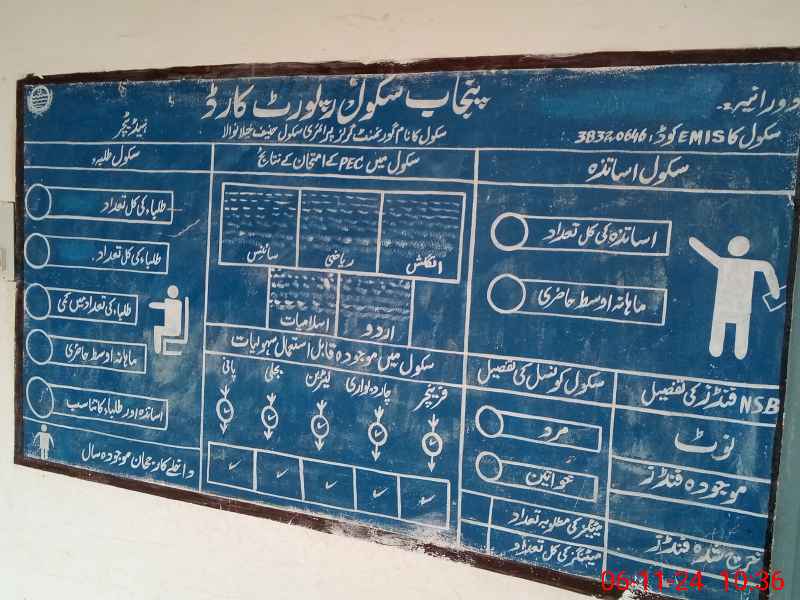 پنجاب سکول رپورٹ کارڈ
دورانیہ
ہیڈ ٹیچر
سکول کا نام گورنمنٹ گرلز پرائمری سکول حنیف
سکول کا EMIS کوڈ: 38320646
سکول اساتذہ
سکول میں PEC کے امتحان کے نتائج
سکول طلبہ
اساتذہ کی کل تعداد
ماہانہ اوسط حاضری
انگلش
ریاضی
سائنس
اردو
اسلامیات
طلباء کی کل تعداد
طلباء کی کل تعداد
طلباء کی تعداد میں کمی
ماہانہ اوسط حاضری
اساتذہ اور طلباء کا تناسب
داخلے کا رجحان موجودہ سال
سکول میں موجودہ قابل استعمال سہولیات
فرنیچر
چاردیواری
لیٹرین
بجلی
پانی
سکول کونسل کی تفصیل
مرد
خواتین
میٹنگز کی مطلوبہ تعداد
میٹنگز کی کل تعداد
NSB فنڈز کی تفصیل
نوٹ
موجودہ فنڈز
خرچ شدہ فنڈز
06-11-24 10:36